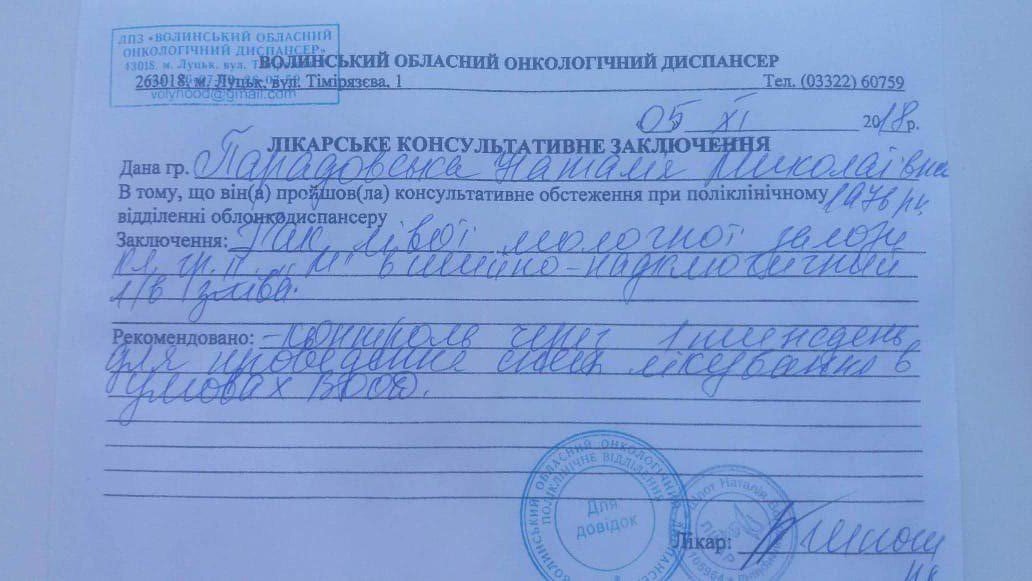 ЛПЗ «ВОЛИНСЬКИЙ ОБЛАСНИЙ
ОНКОЛОГІЧНИЙ ДИСПАНСЕР»
43018, м. Луцьк, вул.
volynood@gmail.com
ВОЛИНСЬКИЙ ОБЛАСНИЙ ОНКОЛОГІЧНИЙ ДИСПАНСЕР
263018, м. Луцьк, вул. Тімірязєва, 1 Тел. (03322) 60759
«05» XI 2018р.
ЛІКАРСЬКЕ КОНСУЛЬТАТИВНЕ ЗАКЛЮЧЕННЯ
Дана гр. Парадовська Наталія Миколаївна
В тому, що він(а) пройшов(ла) консультативне обстеження при поліклінічному 1976 рн
відділенні облонкодиспансеру
Заключення: Рак лівої молочної залози
кл. гр. II. М в шийно-надключичний
л/в зліва.
Рекомендовано: - контроль через 1 тиждень
для проведення спец лікування в
умовах ВООД.
ВОЛИНСЬКИЙ ОБЛАСНИЙ ОНКОЛОГІЧНИЙ ДИСПАНСЕР
ПОЛІКЛІНІЧНЕ ВІДДІЛЕННЯ
Для
довідок
Наталія
ЛІКАР
Лікар: